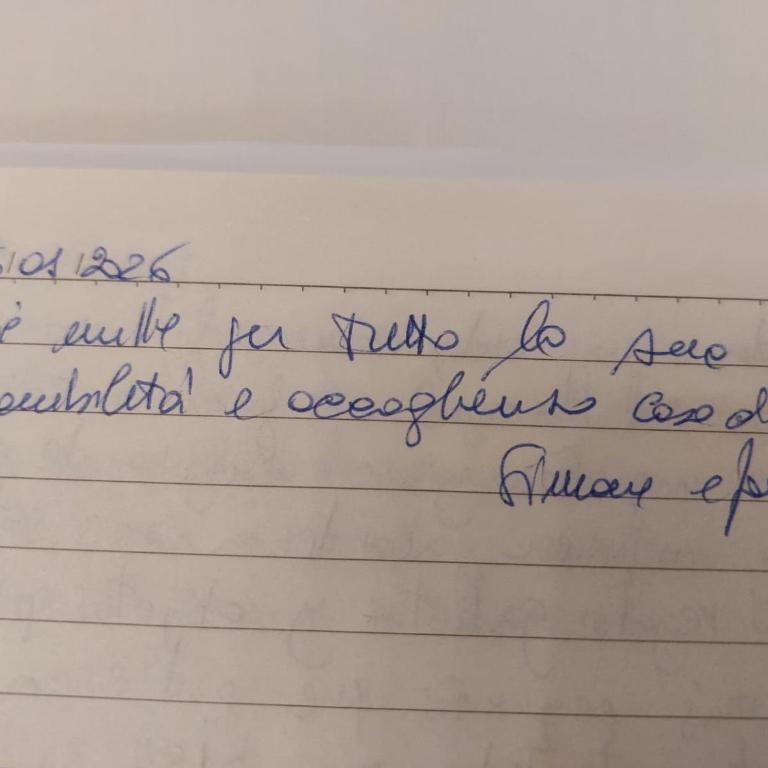 /01/2026
e mille per tutto la sua
onibilità e accoglienza casa d
Simone e